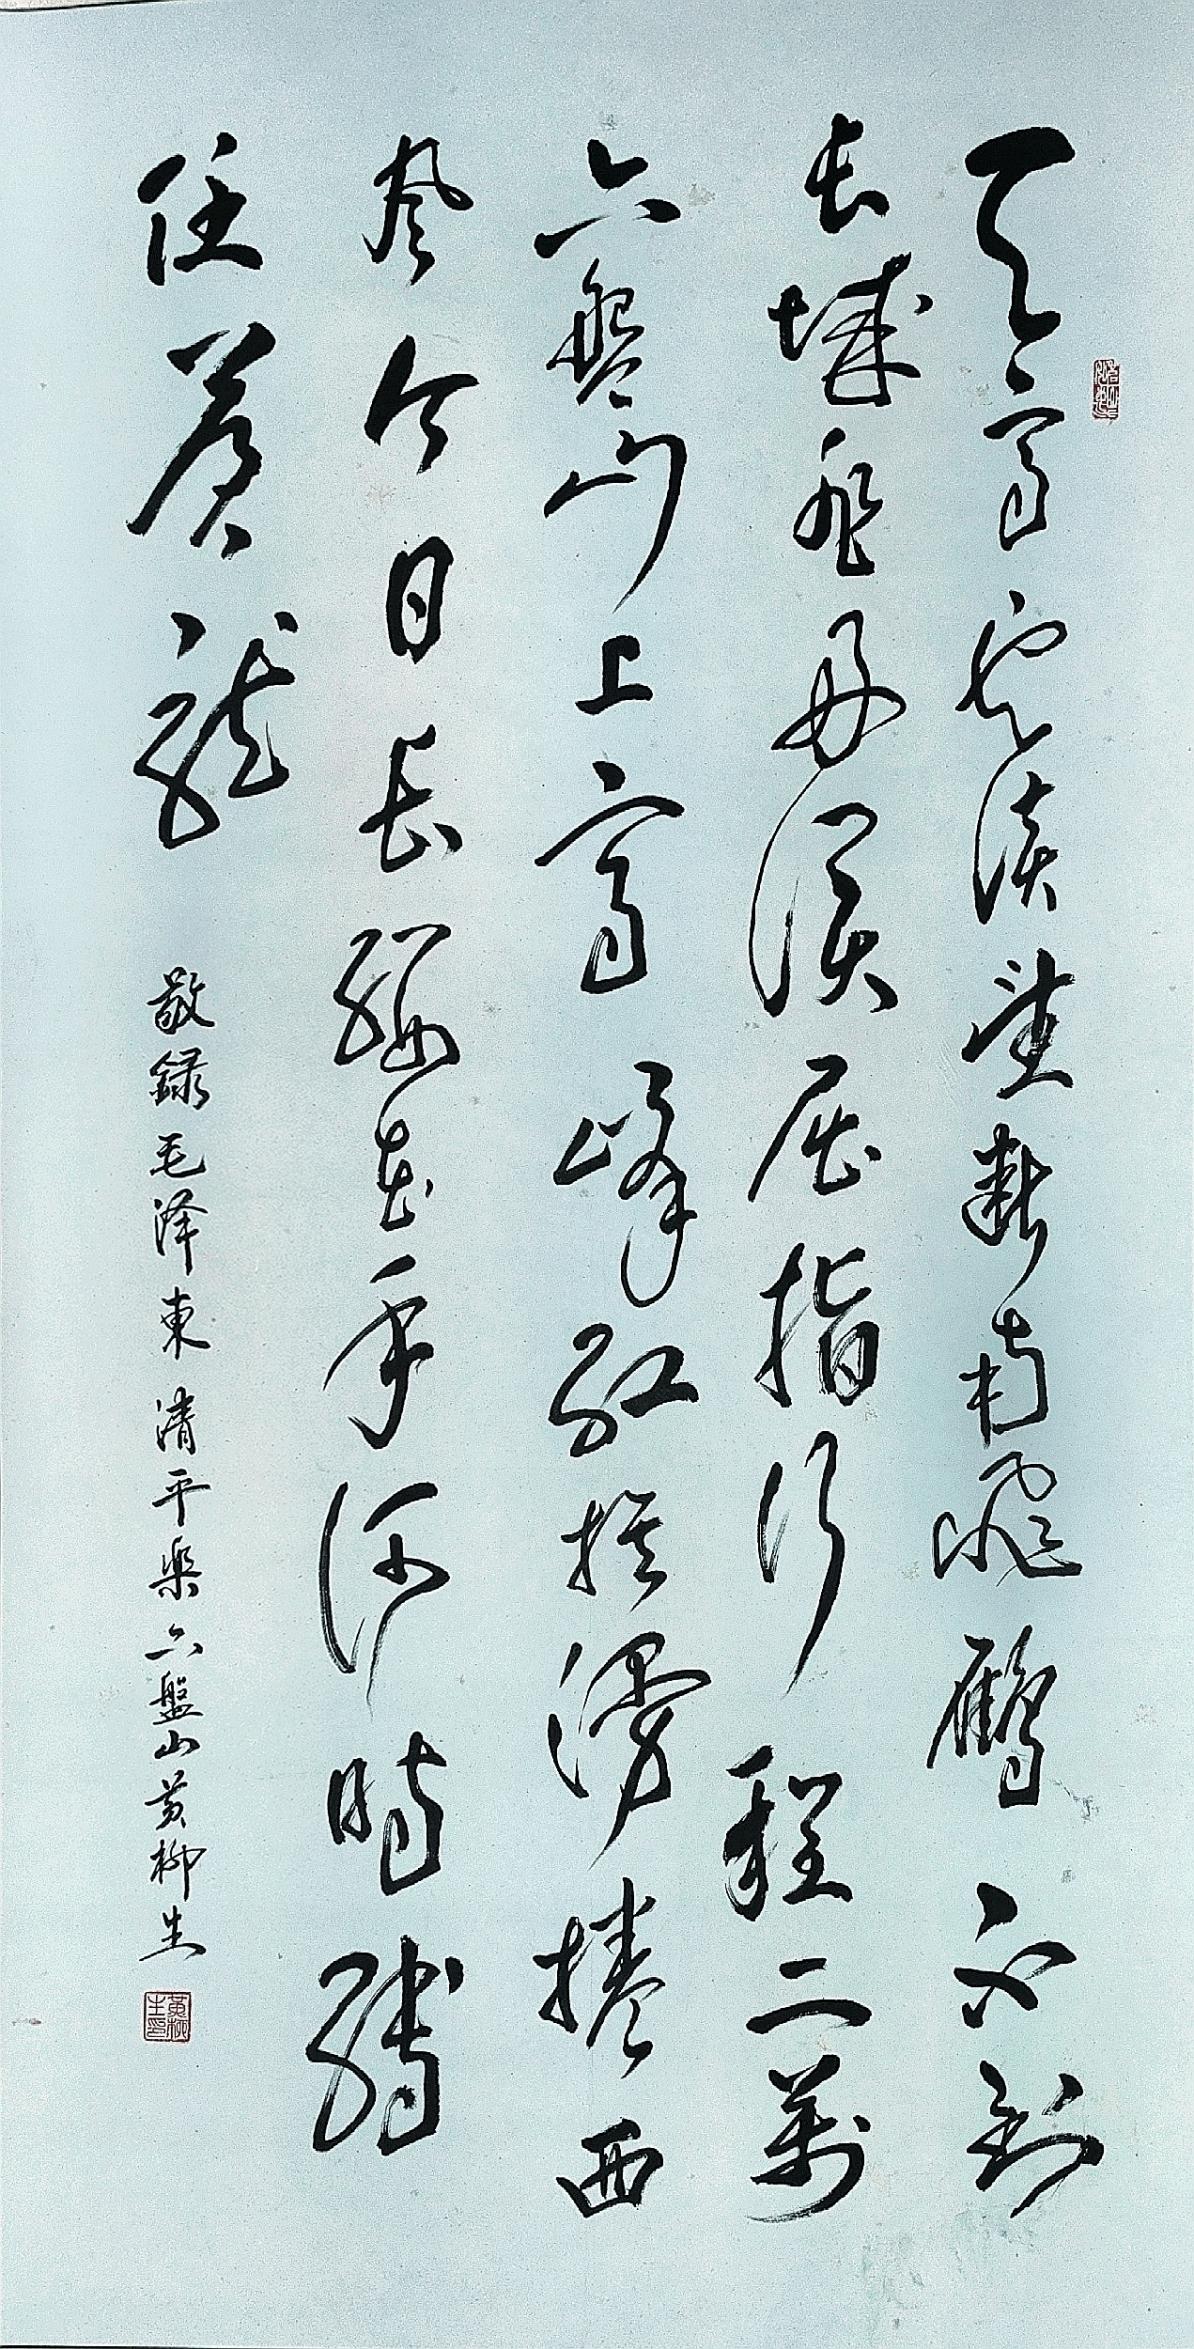 天高雲淡望斷南飛鴈不到
長城非好漢屈指行程二萬
六盤山上高峰紅旗漫捲西
風今日長纓在手何時縛
住蒼龍
敬録毛泽東清平樂六盤山黄柳生
黄柳生印